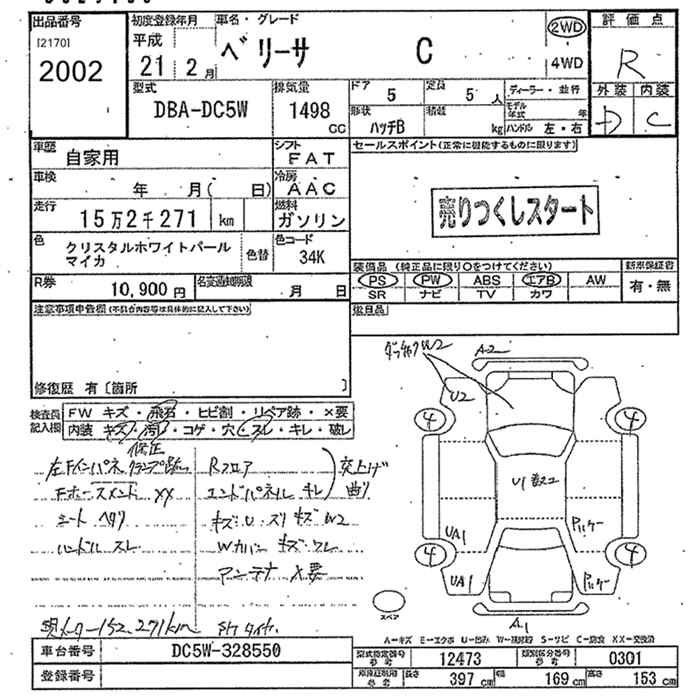 出品番号
[2170]
2002
初度登録年月
平成
21 2月
車名・グレード
ベリーサ C
2WD
4WD
評価点
R
外装 内装
D C
型式
DBA-DC5W
排気量
1498
CC
ドア
5
定員
5 人
形状
ハッチB
積載
kg
ディーラー・並行
モデル年式 年
ハンドル 左・右
車歴
自家用
シフト
FAT
車検
年 月( 日)
冷房
AAC
走行
15万2千271 km
燃料
ガソリン
色
クリスタルホワイトパール
マイカ
色替
色コード
34K
R券
10,900円
名変期限
月 日
セールスポイント(正常に機能するものに限ります)
売りつくしスタート
装備品 (純正品に限り○をつけてください)
新車保証書
PS PW ABS エアB AW
SR ナビ TV カワ
有・無
注意事項申告欄(不具合内容等は具体的に記入して下さい)
修復歴 有〔箇所 〕
検査員
記入欄
FW キズ・飛石・ヒビ割・リペア跡・×要
内装 キズ・汚れ・コゲ・穴・スレ・キレ・破レ
修正
左Fインパネ クランプ跡
Rフロア
交上げ
曲り
エンドパネル キレ
XX
シート ヘタリ
キズ・U・ズリ キズ W2
ハンドル スレ
Wカバー キズ・ワレ
アンテナ X要
現メーター152,271km
A-2
U2
W2
4
4
4
4
U1
UA1
UA1
A1
スペア
A-キズ E-エクボ U-凹み W-補修跡 S-サビ C-腐食 XX-交換済
車台番号
DC5W-328550
登録番号
型式指定番号
参考
12473
類別区分番号
参考
0301
参考
長さ 397 cm
幅 169 cm
高さ 153 cm